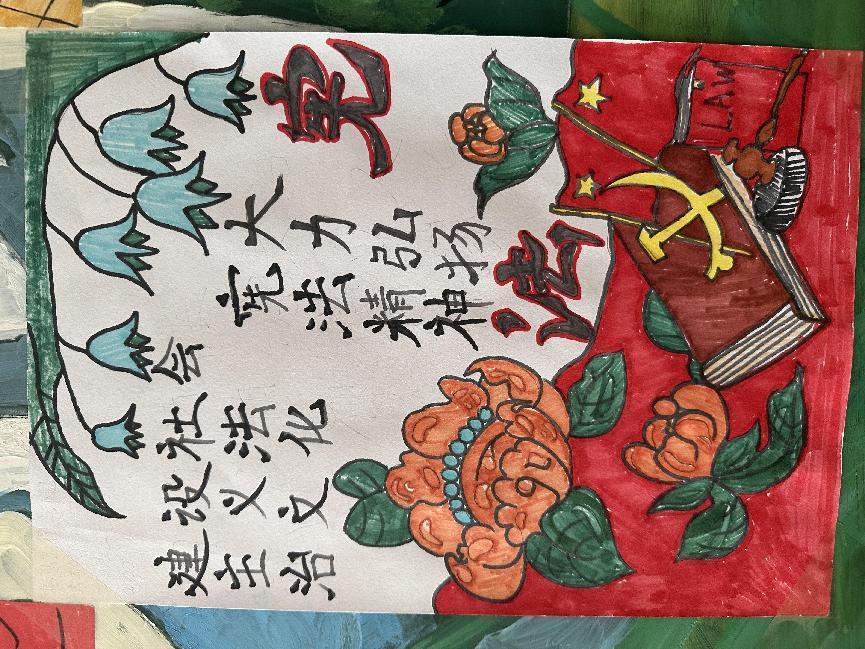 宪法
大力弘扬
宪法精神
建设社会
主义法
治文化
LAW